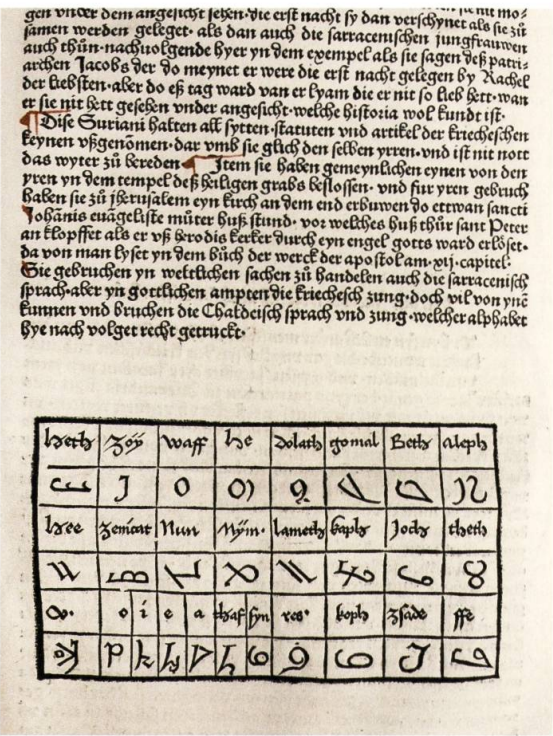 gen vnder dem angesicht sehen· die erst nacht sy dan verschynet als sie zů
samen werden geleget· als dan auch die sarracenischen jungfrauwen
auch thůn· nachuolgende hyer yn dem exempel als sie sagen deß patri-
archen Jacobs der do meynet er were die erst nacht gelegen by Rachel
der liebsten· aber do eß tag ward van er lyam die er nit so lieb hett· wan
er sie nit hett gesehen vnder angesicht· welche historia wol kundt ist·
Dise Suriani halten all sytten· statuten vnd artikel der kriecheschen
keynen vßgenōmen· dar vmb sie glich den selben yrren· vnd ist nit nott
das wyter zů bereden Item sie haben gemeynlichen eynen von den
yren yn dem tempel deß heiligen grabs beslossen· vnd fur yren gebruch
haben sie zů jherusalem eyn kirch an dem end erbuwen do ettwan sancti
Johānis euāgeliste můter huß stund· vor welches huß thůr sant Peter
an klopffet als er vß herodis kerker durch eyn engel gotts ward erlöset·
da von man lyset yn dem bůch der werck der apostolam· xij· capitel·
Sie gebruchen yn weltlichen sachen zů handelen auch die sarracenisch
sprach· aber yn gottlichen ampten die kriechesch zung· doch vil von ynē
kunnen vnd bruchen die Chaldeisch sprach vnd zung· welcher alphabet
hye nach volget recht getruckt·
heth zoÿ waff he dolath gomal Beth Aleph
hee zemcat Nun Mÿm· lameth kaph Joch theth
o i e a thaf syn res· koph zsade ffe